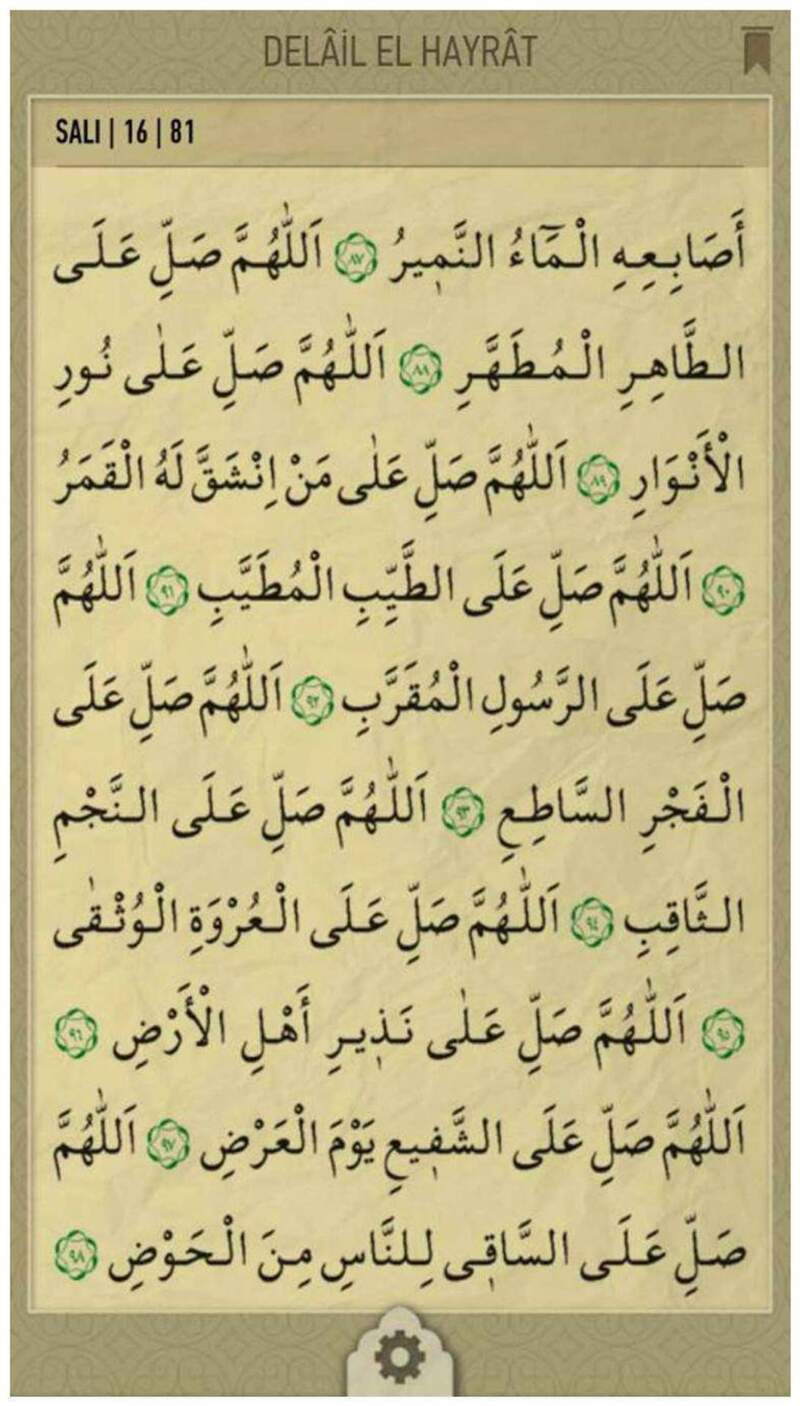 DELÂİL EL HAYRÂT
SALI | 16 | 81
أَصَابِعِهِ الْمَٓاءُ النَّمٖيرُ ٨٧ اَللّٰهُمَّ صَلِّ عَلَى
الطَّاهِرِ الْمُطَهَّرِ ٨٨ اَللّٰهُمَّ صَلِّ عَلٰى نُورِ
الْأَنْوَارِ ٨٩ اَللّٰهُمَّ صَلِّ عَلٰى مَنْ اِنْشَقَّ لَهُ الْقَمَرُ
٩٠ اَللّٰهُمَّ صَلِّ عَلَى الطَّيِّبِ الْمُطَيَّبِ ٩١ اَللّٰهُمَّ
صَلِّ عَلَى الرَّسُولِ الْمُقَرَّبِ ٩٢ اَللّٰهُمَّ صَلِّ عَلَى
الْفَجْرِ السَّاطِعِ ٩٣ اَللّٰهُمَّ صَلِّ عَلَى النَّجْمِ
الثَّاقِبِ ٩٤ اَللّٰهُمَّ صَلِّ عَلَى الْعُرْوَةِ الْوُثْقٰى
٩٥ اَللّٰهُمَّ صَلِّ عَلٰى نَذٖيرِ أَهْلِ الْأَرْضِ ٩٦
اَللّٰهُمَّ صَلِّ عَلَى الشَّفٖيعِ يَوْمَ الْعَرْضِ ٩٧ اَللّٰهُمَّ
صَلِّ عَلَى السَّاقٖى لِلنَّاسِ مِنَ الْحَوْضِ ٩٨